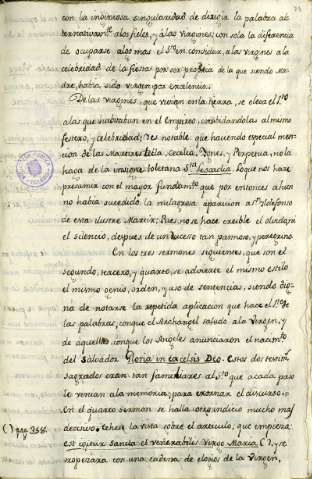 con la indiversa singularidad de dirigir la palabra al-
ternativam.te a los fieles, y à las virgenes; con sola la diferencia
de ocuparse algo mas el S.to en convidar, a las virgenes a la
celebridad de la fiesta por ser propria de la que siendo Ma-
dre, habia sido virgen por excelencia.
De las virgenes, que vivian en la tierra, se eleva el S.to
a las que habitaban en el Empireo combidandolas al mismo
festejo, y celebridad; Y es notable que haciendo especial men-
cion de las Martires Tecla, Cecilia, Ynes, y Perpetua, no la
haga de la insigne toletana S.ta Leocadia. Lo que nos hace
presumir con el mayor fundam.to que por entonces aun no
habia sucedido la milagrosa aparicion a S.n Ildefonso
de esta ilustre Martir; Pues, no se hace creible el olvido, ni
el silencio, despues de un suceso tan famoso, y peregrino
En los tres sermones siguientes, que son el
segundo, tercero, y quarto, se advierte el mismo estilo
el mismo genio, orden, y uso de sentencias; siendo dig-
na de notarse la repetida aplicacion que hace el S.to de
las palabras, con que el Archangel saludo a la Virgen, y
de aquellas con que los Angeles anunciaron el nacim.to
del Salvador Gloria in excelsis Deo. Estos dos textos
sagrados eran tan familiares al S.to que a cada paso
le venian a la memoria; para exornar el discurso.
En el quarto sermon se halla otro indicio mucho mas
decisivo. Echese la vista sobre el articulo, que empieza:
est igitur sancta et venerabilis Virgo Maria ( ), y se
tropezara con una cadena de elogios de la Virgen,
( ) pag. 358.